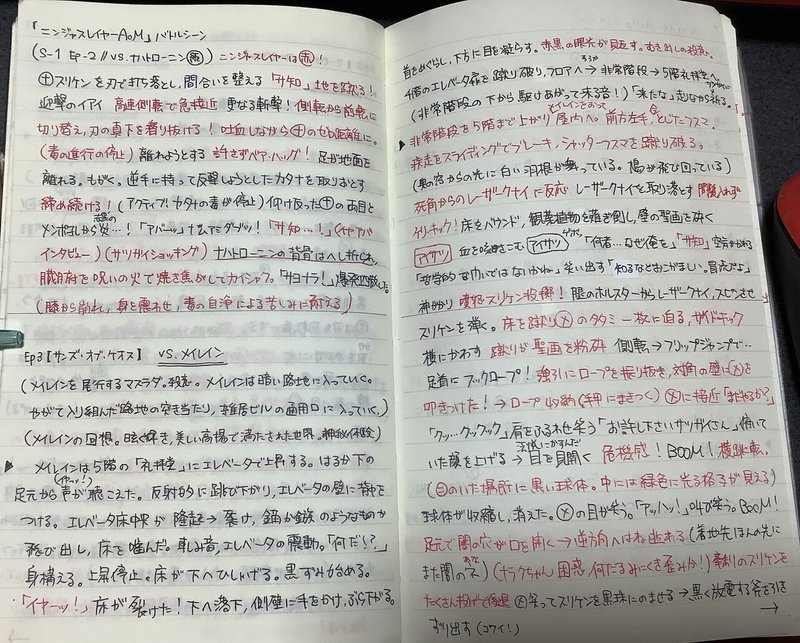 「ニンジャスレイヤーAoM」バトルシーン
(S-1 Ep-2 // VS. ナハトローニン㊩) ニンジャスレイヤーは㊍!
㊉スリケンを刃で打ち落とし、間合いを整える「サツ知」地を蹴る!
迎撃のイアイ 高速側転で急接近 更なる斬撃! 側転から前転に
切り替え、刃の真下を潜り抜ける! 吐血しながら㊉のゼロ距離に。
(毒の進行の停止) 離れようとする 許さずベア・ハッグ! 足が地面を
離れる。もがく。逆手に持って反撃しようとしたカタナを取りおとす
締め続ける! (アクティブ! カタナの毒が停止) 仰け反った㊉の両目と
メンポから炎…!「アバーッ」ナムアミダブツ!「サツ知…!」(イヤアバ
インタビュー) (サツバツショッキング) ナハトローニンの背骨はへし折られ、
臓腑を呪いの火で焼き焦がしてカイシャク。「サヨナラ!」爆発四散した。
(膝から崩れ、身を震わせ、毒の自浄による苦しみに耐える)
Ep3【サンズ・オブ・ケオス】 VS. メイレイン
(メイレインを尾行するマスラダ。殺忍。メイレインは暗い路地に入っていく。
やがて入り組んだ路地の突き当たり、雑居ビルの通用口に入っていく。)
(メイレインの回想。眩く輝き、美しい高揚で満たされた世界。神秘体験)
メイレインは5階の「礼拝堂」にエレベータで上昇する。はるか下の
足元から声が聴こえた。(イヤーッ!) 反射的に跳び下がり、エレベータの壁に背中を
つける。エレベータ床中央が隆起→裂け、錨か鏃のようなものが
飛び出し、床を噛んだ。軋み音、エレベータの震動。「何だい?」
身構える。上昇停止。床が下へひしゲる。黒ずみ始める。
「イヤーッ!」床が裂けた! 下へ落下、側壁に手をかけ、ぶら下がる。
首をめぐらし、下方に目を凝らす。赤黒の眼光が見返す。むき出しの殺意。
4階のエレベータ扉を蹴り破り、フロアへ→非常階段→5階礼拝堂へ。
(非常階段の下から駆けあがって来る音!)「来たな」走りながら祈る。
非常階段を5階まで上がり 屋内へ。前方左手 金としたフスマ。
疾走をスライディングでブレーキ、シャッターフスマを蹴り破る。
(奥の窓からの先に白い羽根が舞っている。鳩が飛び回っている)
死角からのレーザークナイに反応 レーザークナイを取り落とす 間髪入れず
ケリ・キック! 床をバウンド、観葉植物を薙ぎ倒し、壁の聖画を砕く
アイサツ 血を吐きこむ アイサツ 「何者…なぜ俺を」「サツ知」
「哲学的な問いではないかね」笑い出す「知るなどおこがましい、盲点だよ」
神がかり 連続スリケン投擲! 腿のホルスターからレーザークナイ、スピンさせ
スリケンを弾く。床を蹴り㋱のタタミ一枚に迫る、サイドキック
横にかわす 蹴りが聖画を粉砕 側転→フリップジャンプで…
足首にフックロープ! 強引にロープを振り抜き、対角の壁に㋱を
叩きつけた!→ロープ収納(手にまきつく) ㋱に接近「まだやるか?」
「クッ…クックック」肩をふるわせ笑う「お許し下さいサツガイさん」俯いて
いた顔を上げる→目を見開く 危機感! BOOM! 横跳転。
(㊁のいた場所に黒い球体。中には緑色に光る格子が見える)
球体が収縮し、消えた。㋱の目が笑う。「アッハッ!」㋱叫び笑う。BOOM!
足元で闇の穴が口を開く→逆方向へはね逃れる (着地先ほんの先に
また闇の穴) (ナラクちゃん困惑 何たるみにくき歪みか!) 牽制のスリケンを
たくさん投げて後退 ㋱笑ってスリケンを黒球にのませる→黒く放電する斧を引き
ずり出す (コワイ!) →